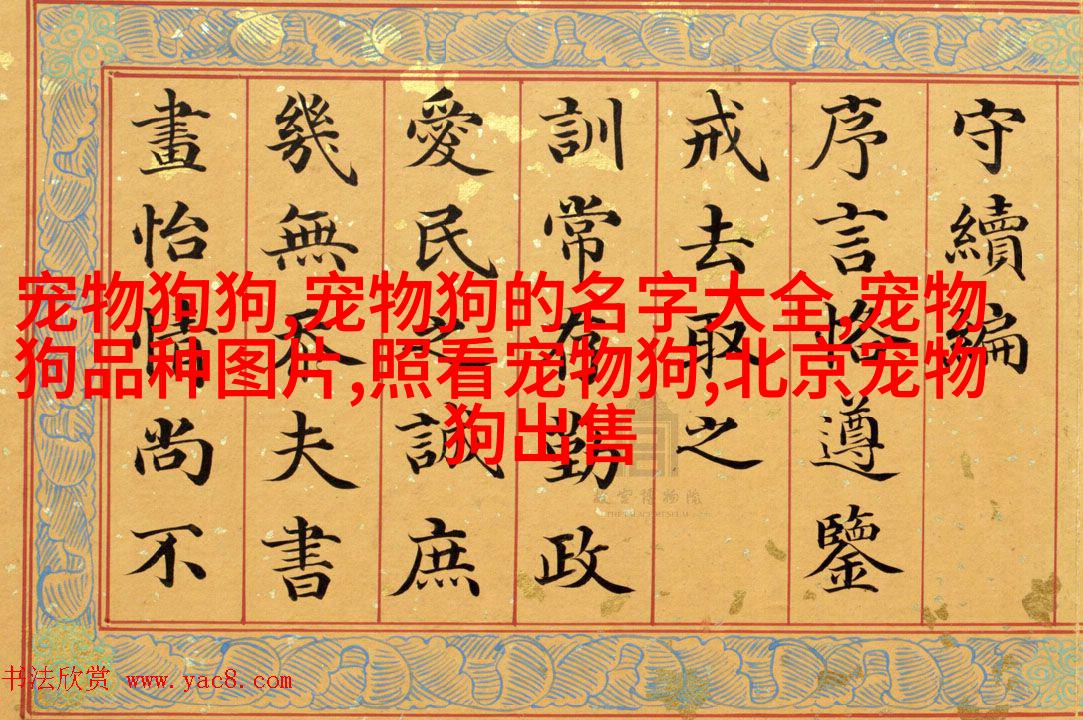 守續編
序言恪遵鑒
戒去取之
訓常勤政
愛民之誠庶
幾無夫書
畫怡情尚不
宠物狗狗,宠物狗的名字大全,宠物
狗品种图片,照看宠物狗,北京宠物
狗出售
故宫博物院
THE PALACE MUSEUM
书法欣赏 www.yac8.com